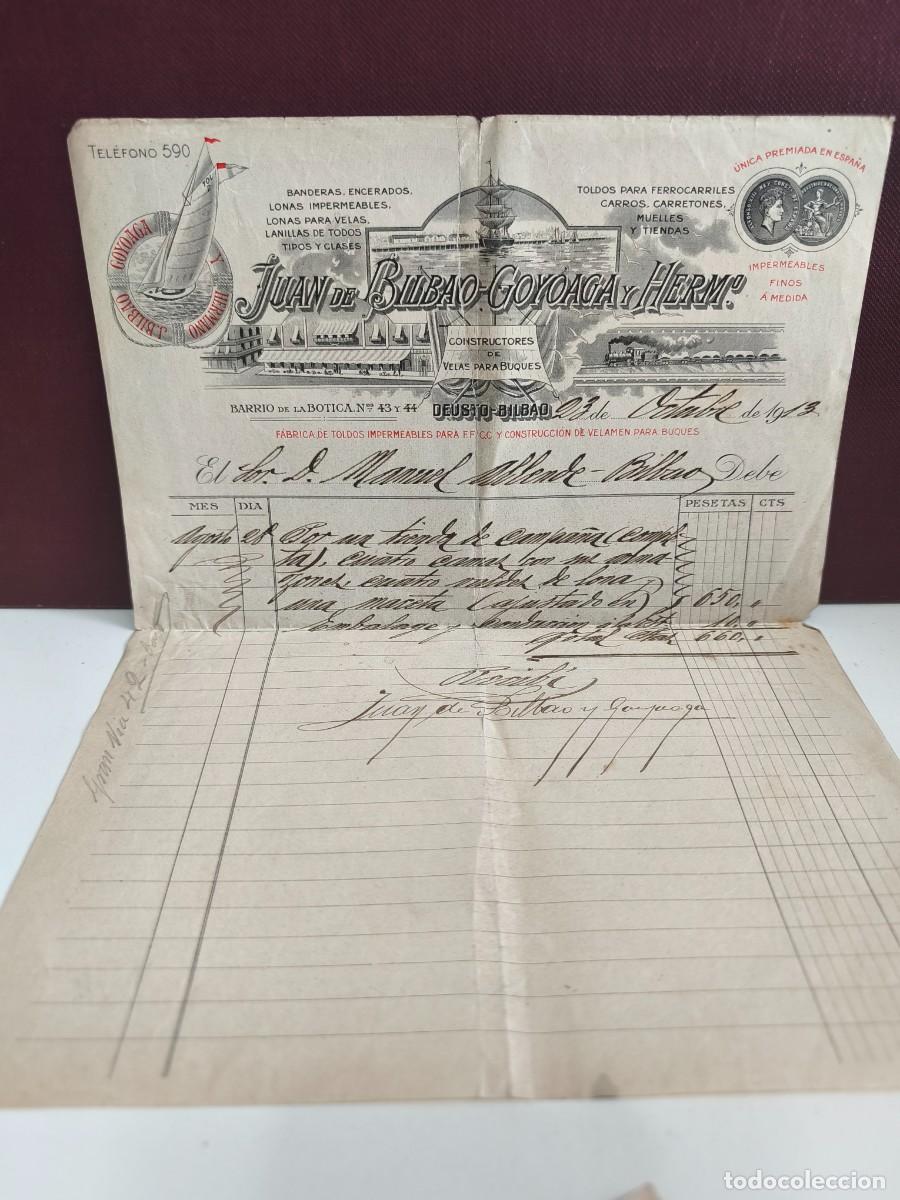 TELÉFONO 590
GOYOAGA Y HERMANO J. BILBAO
BANDERAS, ENCERADOS,
LONAS IMPERMEABLES,
LONAS PARA VELAS,
LANILLAS DE TODOS
TIPOS Y CLASES
TOLDOS PARA FERROCARRILES
CARROS, CARRETONES,
MUELLES
Y TIENDAS
ÚNICA PREMIADA EN ESPAÑA
IMPERMEABLES
FINOS
Á MEDIDA
JUAN DE BILBAO-GOYOAGA Y HERMO.
CONSTRUCTORES
DE
VELAS PARA BUQUES
BARRIO DE LA BOTICA. Nos 43 Y 44 DEUSTO-BILBAO 23 de Octubre de 1913
FÁBRICA DE TOLDOS IMPERMEABLES PARA F.F. C.C Y CONSTRUCCIÓN DE VELAMEN PARA BUQUES
El Sor. D. Manuel Allende-Bilbao Debe
MES DIA PESETAS CTS
Agosto 28 Por un tienda de campaña (comple-
ta), cuatro camas con sus alma
dones, cuatro baldes de lona
una maceta (ajustado en) 650,"
Embalage y conducion 10,"
660,"
Recibí
Juan de Bilbao y Goyoaga
Gran Via 42
todocoleccion